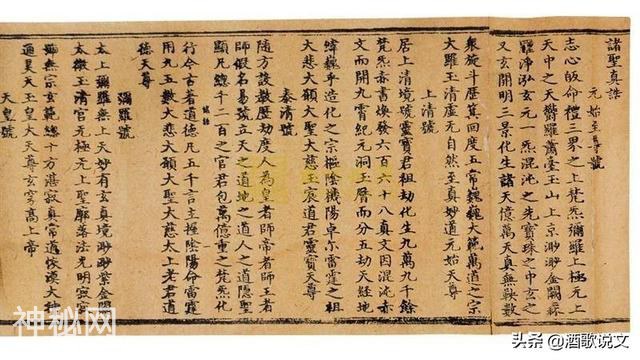 諸聖真誥
元始至尊號
志心皈命禮三界之上梵炁彌羅上極无上
天中之天鬱羅蕭臺玉山上京渺渺金闕森
羅淨泓玄元一炁混沌之先寶珠之中玄之
又玄開明三景化生諸天億萬天真無鞅數
衆旋斗歷箕回度五常巍巍大範萬道之宗
大羅玉清虛无自然至真妙道元始天尊
上清號
居上清境號靈寶君祖劫化生九萬九千餘
梵炁赤書煥發六百六十八真文因混沌赤
文而開九霄紀元洞玉曆而分五劫天經地
緯巍乎造化之宗樞陰機陽卓尔雷霆之祖
大悲大願大聖大慈玉宸道君靈寶天尊
泰清號
隨方設教歷劫度人為皇者師帝者師王者
師假名易號立天之道地之道人之道隱聖
顯凡總千二百之官君包萬億重之梵炁化
行今古著道德凡五千言主握陰陽命雷霆
用九五數大悲大願大聖大慈太上老君道
德天尊
彌羅號
太上彌羅無上天妙有玄真境渺渺紫金闕
太微玉清宮无極无上聖廓落法光明寂寂
浩無宗玄範總十方湛寂真常道恢漠大神
通昊天玉皇大天尊玄穹高上帝
天皇號
神秘网
头条 @酒歌说文